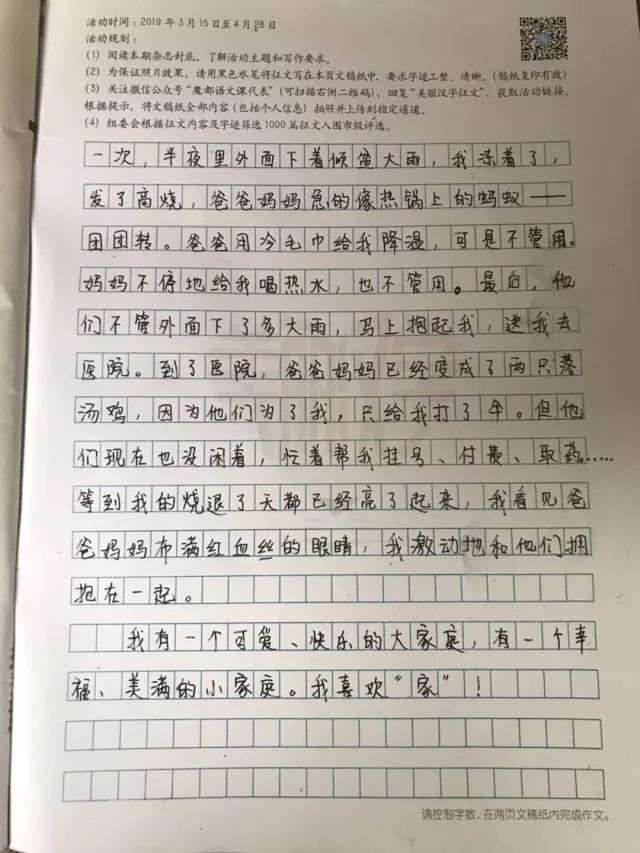 活动时间：2019年3月15日至4月28日
活动规则：
(1) 阅读本期杂志封底，了解活动主题和写作要求。
(2) 为保证照片效果，请用黑色水笔将征文写在本页文稿纸中，要求字迹工整、清晰。（稿纸复印有效）
(3) 关注微信公众号“魔都语文课代表”（可扫描右侧二维码），回复“美丽汉字征文”，获取活动链接。
根据提示，将文稿纸全部内容（包括个人信息）拍照并上传到指定通道。
(4) 组委会根据征文内容及字迹筛选1000篇征文入围市级评选。
一次，半夜里外面下着倾盆大雨，我冻着了，
发了高烧，爸爸妈妈急的像热锅上的蚂蚁——
团团转。爸爸用冷毛巾给我降温，可是不管用。
妈妈不停地给我喝热水，也不管用。最后，他
们不管外面下了多大雨，马上抱起我，送我去
医院。到了医院，爸爸妈妈已经变成了两只落
汤鸡，因为他们为了我，只给我打了伞。但他
们现在也没闲着，忙着帮我挂号、付费、取药……
等到我的烧退了天都已经亮了起来，我看见爸
爸妈妈布满红血丝的眼睛，我激动地和他们拥
抱在一起。
我有一个可爱、快乐的大家庭，有一个幸
福、美满的小家庭。我喜欢“家”！
请控制字数，在两页文稿纸内完成作文。